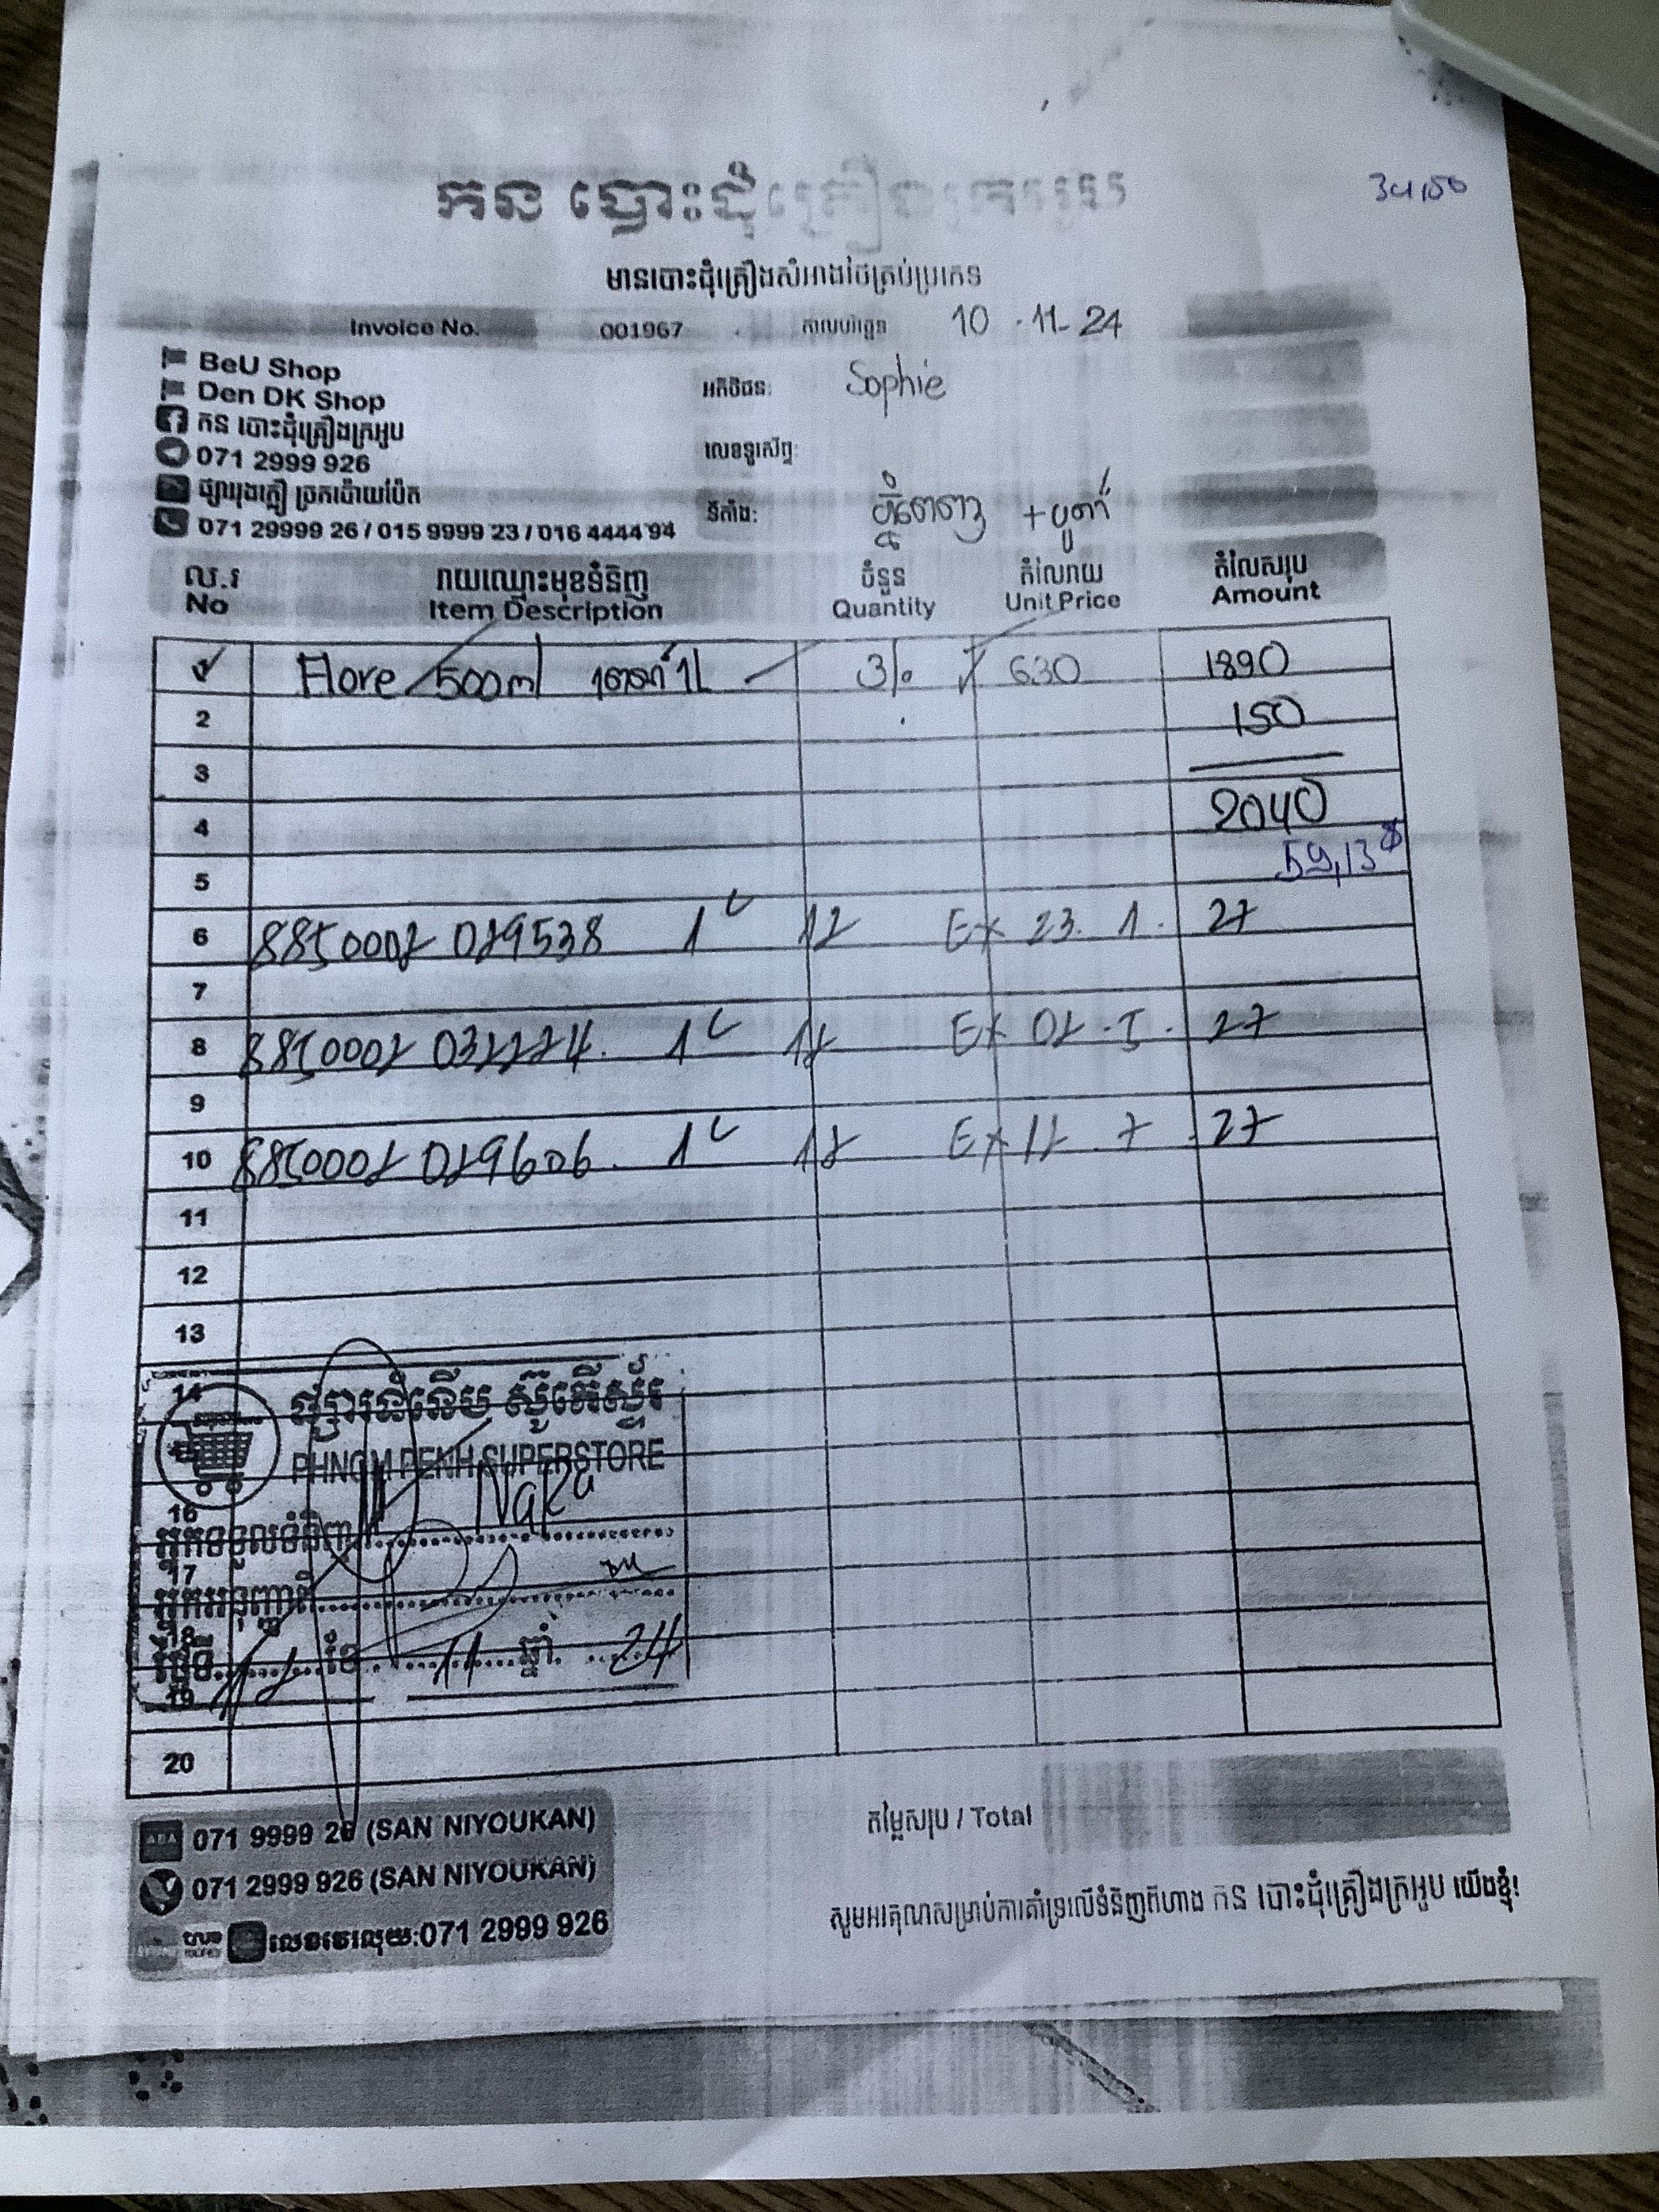 34,50
កន បោះដុំគ្រឿងក្រអូប
មានបោះដុំគ្រឿងសំអាងថៃគ្រប់ប្រភេទ
Invoice No. 001967 កាលបរិច្ឆេទ 10 - 11 - 24
BeU Shop
Den DK Shop
អតិថិជន: Sophie
កន បោះដុំគ្រឿងក្រអូប
071 2999 926
លេខទូរស័ព្ទ:
ផ្សារឃុងភ្លឺ ច្រកប៉ោយប៉ែត
ទីតាំង: ភ្នំពេញ
071 29999 26 / 015 9999 23 / 016 4444 94
ល.រ រាយឈ្មោះមុខទំនិញ ចំនួន តំលៃរាយ តំលៃសរុប
No Item Description Quantity Unit Price Amount
Flore 500ml 1L 3 630 1890
2 150
3
4 2040
5 59,13$
6 8850002 029538 1 12 Ex 23. 1. 27
7
8 8850002 032224. 1 12 Ex 02 - 5 . 27
9
10 8850002 029606. 1 12 Ex 12 . 7 . 27
11
12
13
14 ផ្សារទំនើប ស៊ូភើស្ទ័រ
PHNOM PENH SUPERSTORE
16
អ្នកទទួលទំនិញ Naka
17
អ្នកអនុញ្ញាតិ
18
ថ្ងៃទី 12 ខែ 11 ឆ្នាំ 24
19
20
071 9999 26 (SAN NIYOUKAN)
តម្លៃសរុប / Total
071 2999 926 (SAN NIYOUKAN)
សូមអរគុណសម្រាប់ការគាំទ្រលើទំនិញពីហាង កន បោះដុំគ្រឿងក្រអូប យើងខ្ញុំ!
true លេខវេរលុយ:071 2999 926